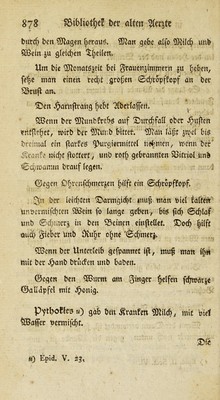 878 Bibliothek der alten Aerzte
durch den Magen heraus. Man gebe also Milch und
Wein zu gleichen Theilen.
Um die Monatszeit bey Frauenzimmern zu heben,
setze man einen recht großen Schröpfkopf an der
Brust an.
Den Harnstrang hebt Aderlassen.
Wenn der Mundkrebs auf Durchfall oder Husten
entstehet, wird der Mund bittet. Man läßt zwei bis
dreimal ein starkes Purgiermittel nehmen, wenn der
Kranke nicht stottert, und roth gebrannten Vitriol und
Schwamm drauf legen.
Gegen Ohrenschmerzen hilft ein Schröpfkopf.
In der leichten Darmgicht muß man viel kalten
unvermischten Wein so lange geben, bis sich Schlaf
und Schmerz in den Beinen einstellet. Doch hilft
auch Fieber und Ruhr ohne Schmerz.
Wenn der Unterleib gespannet ist, muß man ihn
mit der Hand drücken und baden.
Gegen den Wurm am Finger helfen schwarze
Galläpfel mit Honig.
Pythokles u) gab den Kranken Milch, mit viel
Wasser vermischt.
Die
u) Epid. V. 23.